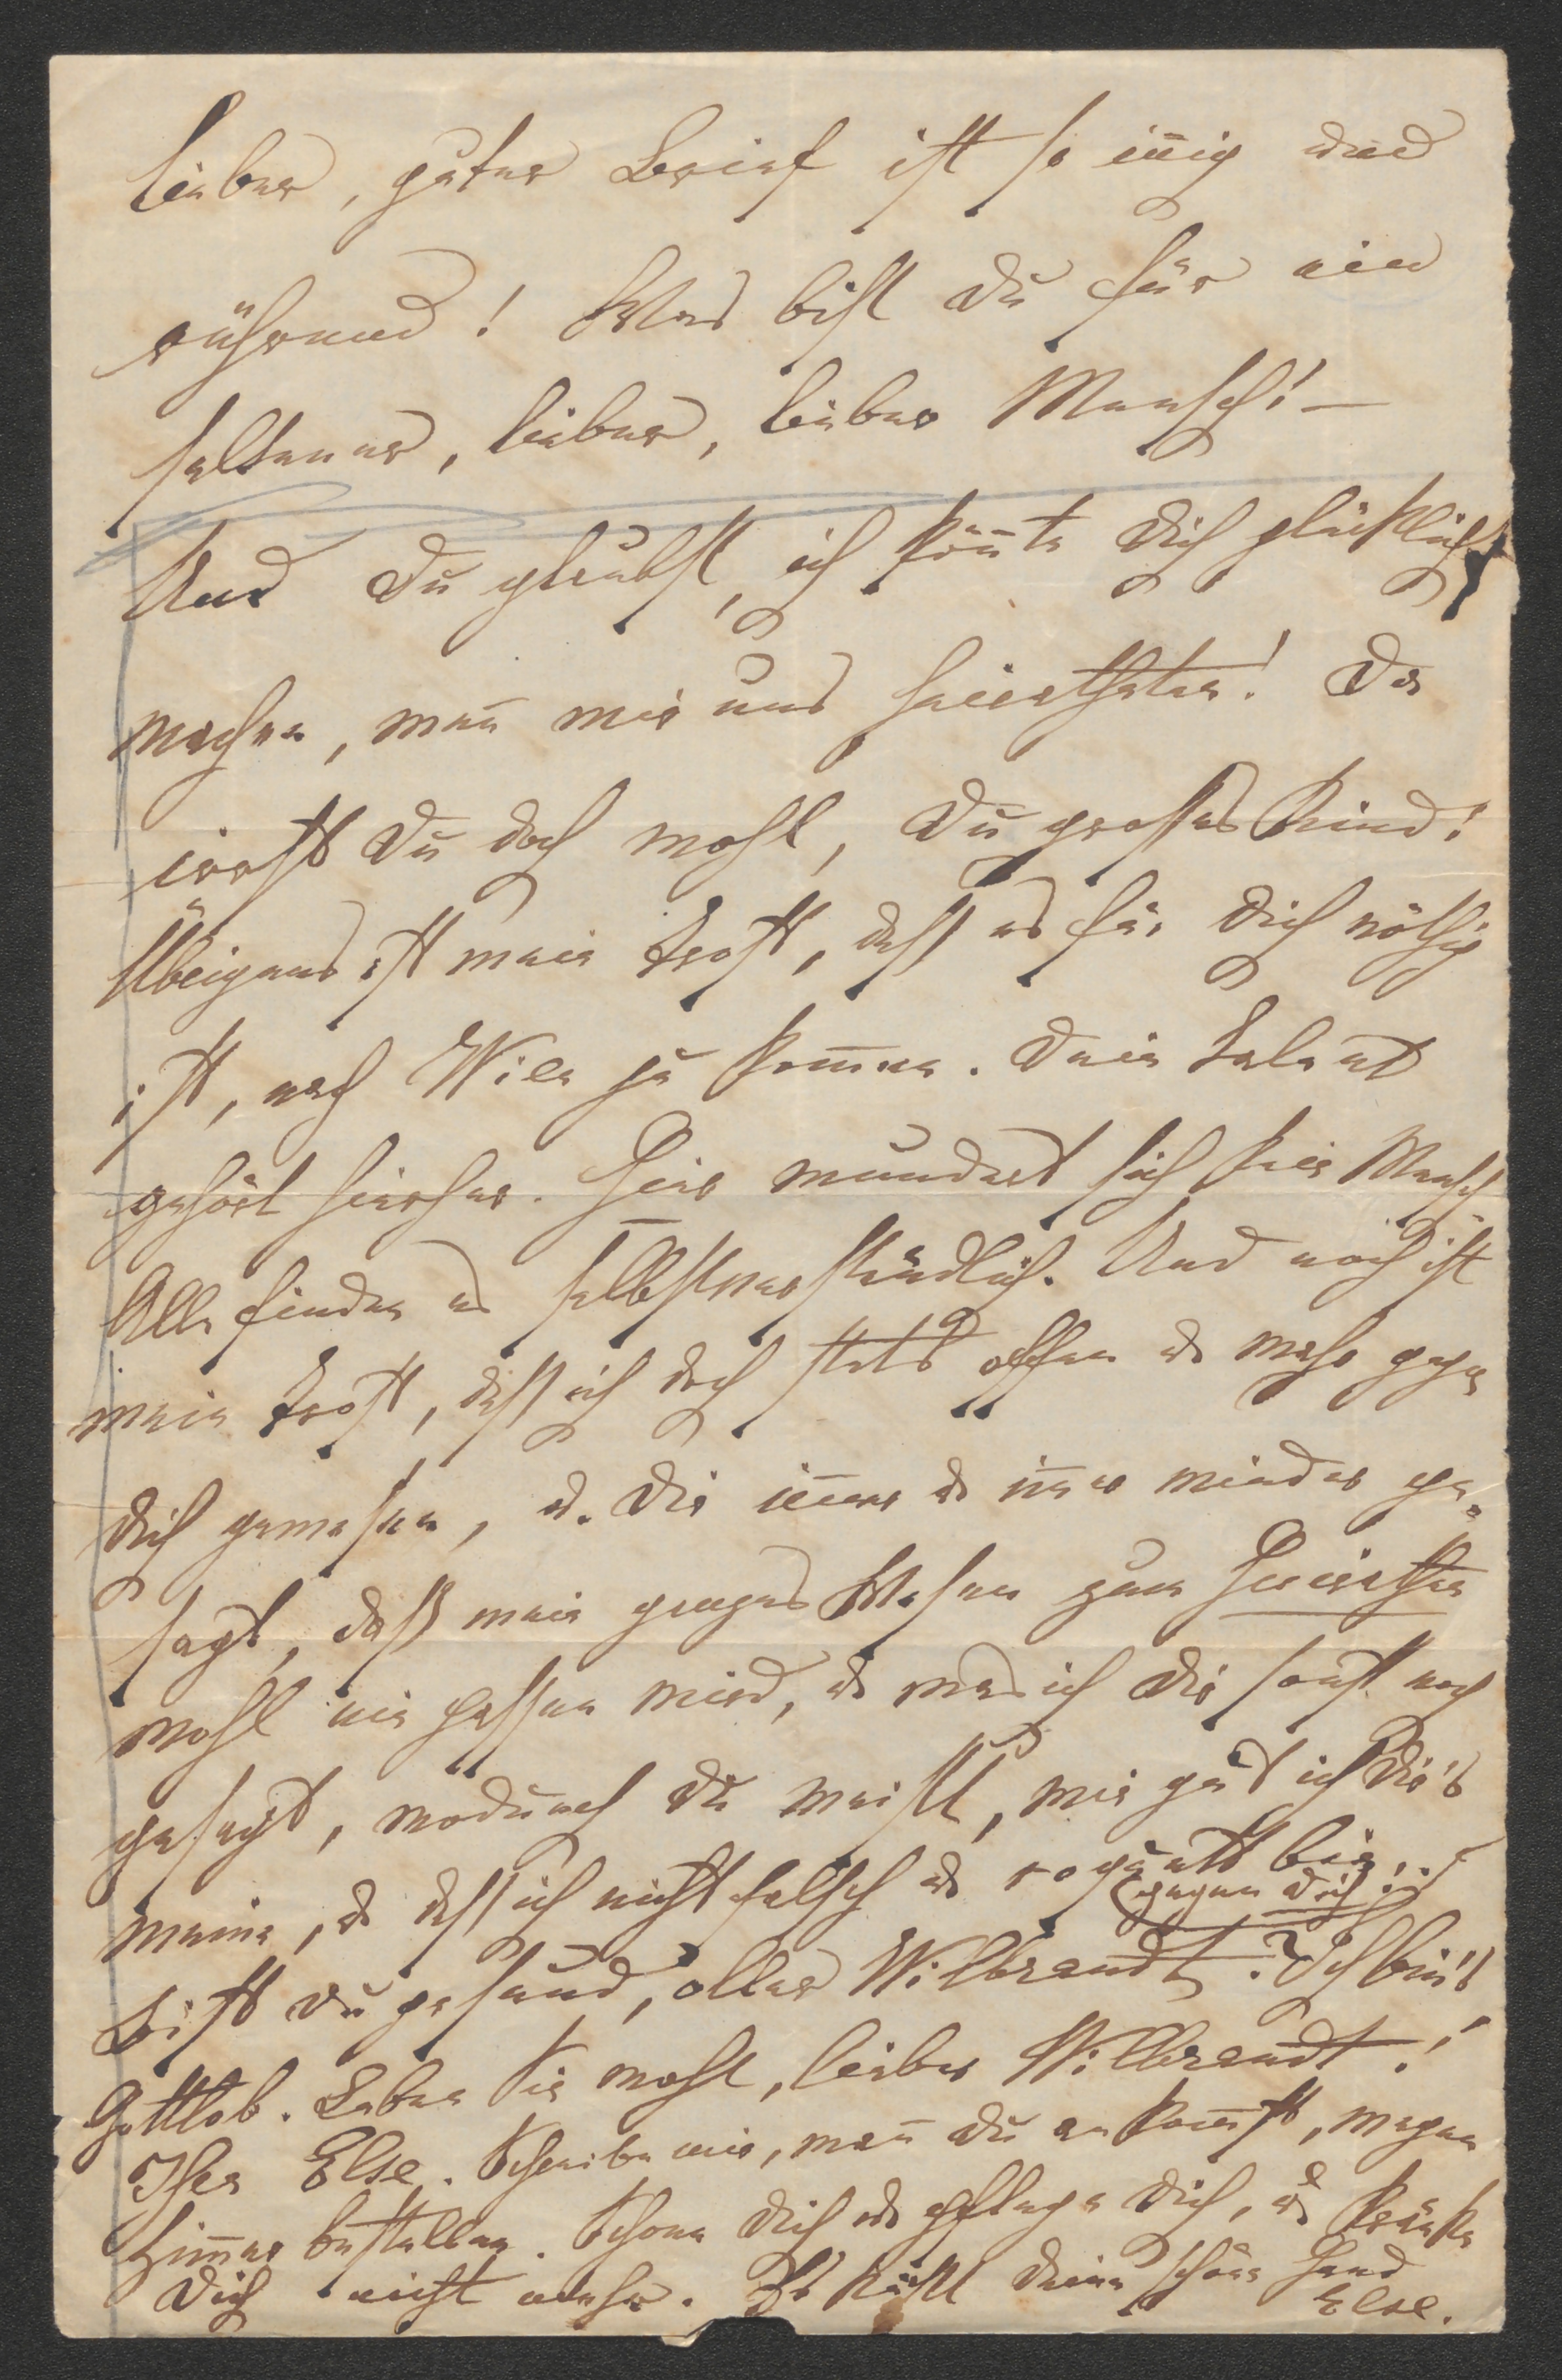 lieber, guter Brief ist so iñig und
rührend! Was bist Du für ein
seltener, lieber, lieber Mensch! —
Und Du glaubst, ich köñte Dich glücklich
machen, weñ wir uns heiratheten! Da
irrst Du doch wohl, Du großes Kind!
Übrigens ist mein Trost, daß es für Dich nöthig
ist, nach Wien zu kom̄en. Dein Talent
gehört hierher. Hier wundert sich kein Mensch
Alle finden es selbstverständlich. Und noch ist
mein Trost, daß ich doch stets offen u wahr gegen
Dich gewesen, u. Dir im̄er u im̄er wieder ge-
sagt, daß mein ganzes Wesen zum Heirathen
wohl nie passen wird, u was ich Dir sonst noch
gesagt, wodurch Du weißt, wie gut ich Dir's
meine, u daß ich nicht falsch u kokett bin
(gegen Dich)!
Bist Du gesund, oller Wilbrandt? Ich bin's
Gottlob. Leben Sie wohl, lieber Wilbrandt!
Ihre Else. Schreibe mir, weñ Du ankom̄st, wegen
Zim̄er bestellen. Schone Dich u pflege Dich, u kränke
Dich nicht mehr. Es küßt Deine schöne Hand
Else.